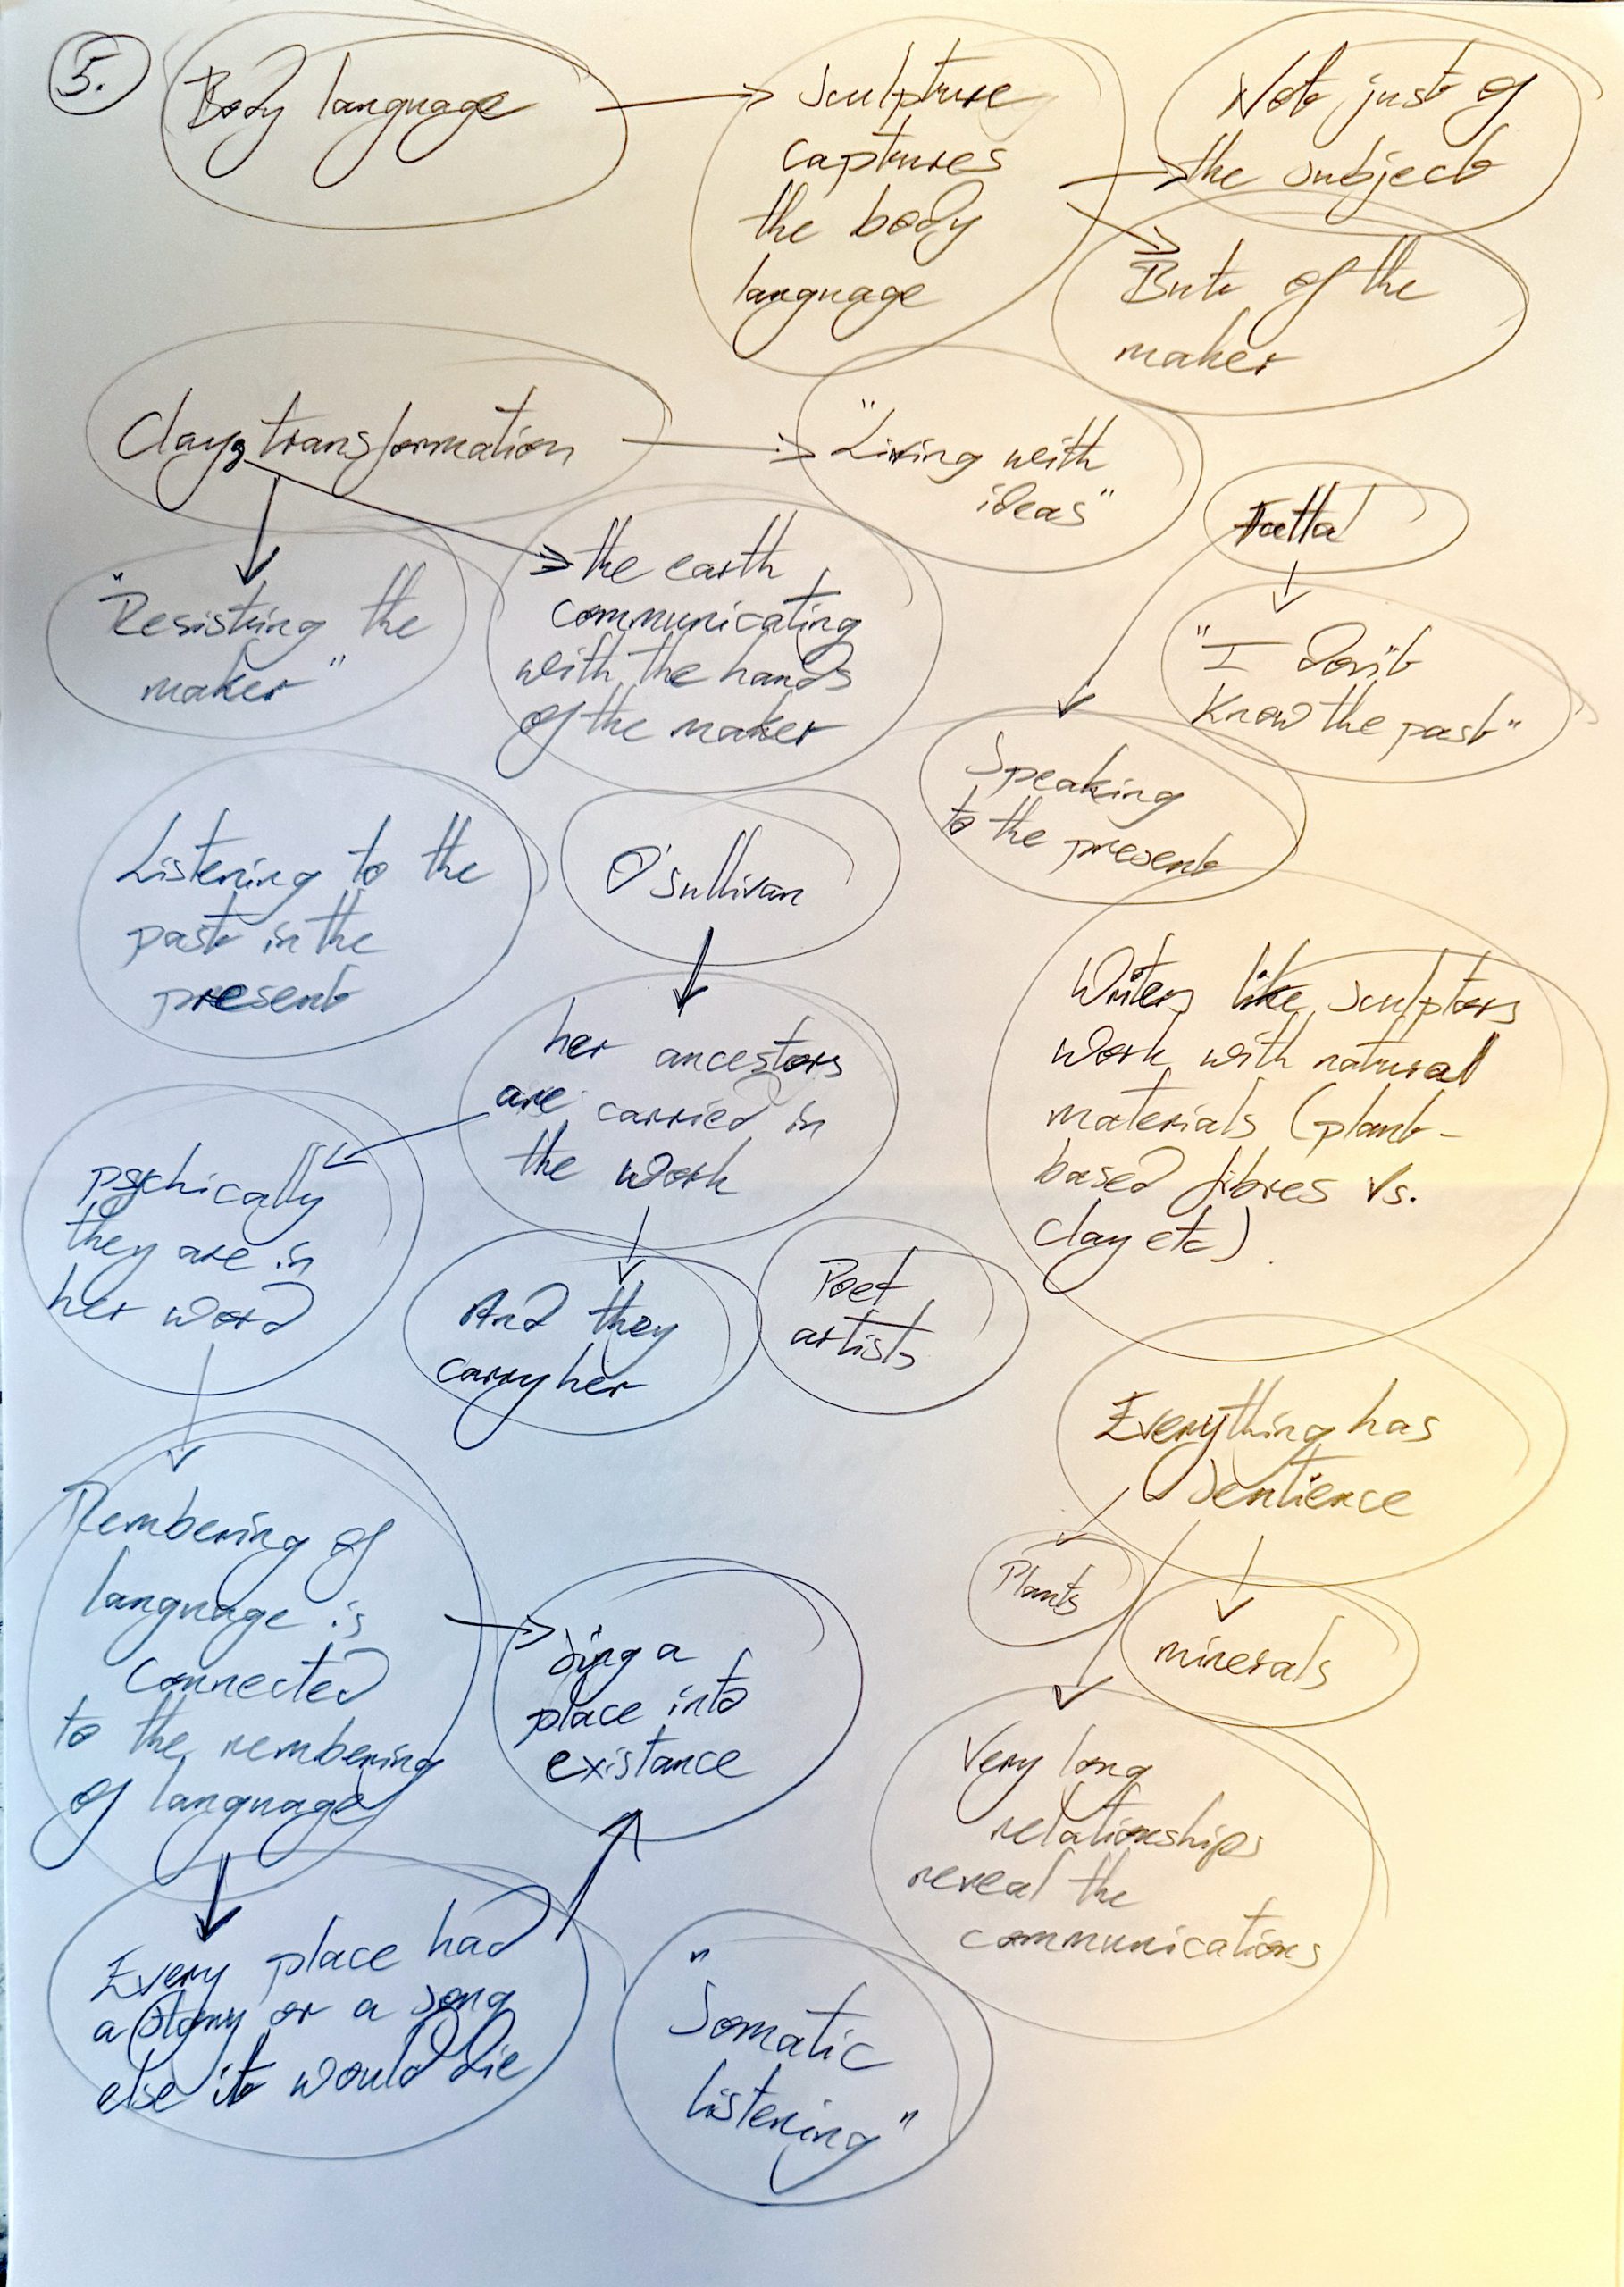 5.
Body language
Sculpture
captures
the body
language
Not just of
the subject
But of the
maker
Clay, transformation
"Living with
ideas"
Fattal
"I don't
know the past"
"Resisting the
maker"
the earth
communicating
with the hands
of the maker
Speaking
to the present
Listening to the
past in the
present
O'Sullivan
her ancestors
are carried in
the work
Writers like sculptors
work with natural
materials (plant-
based fibres vs.
clay etc)
psychically
they are in
her word
And they
carry her
Poet
artists
Everything has
sentience
Plants
minerals
Very long
relationships
reveal the
communications
Rembering of
language is
connected
to the rembering
of language
Sing a
place into
existance
Every place had
a story or a song
else it would die
"Somatic
listening"